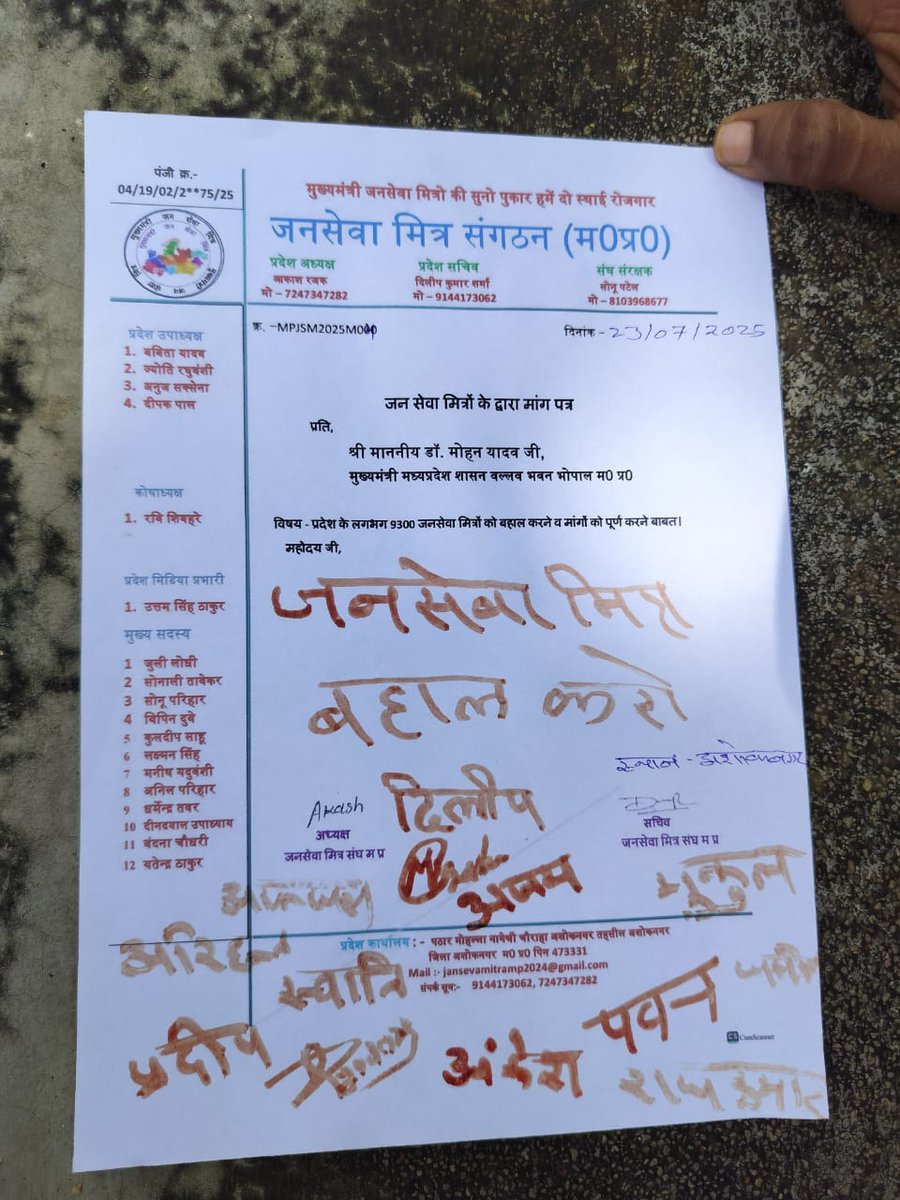 पंजी क्र.-
04/19/02/2**75/25
मुख्यमंत्री जनसेवा मित्रो की सुनो पुकार हमें दो स्थाई रोजगार
जनसेवा मित्र संगठन (म0प्र0)
प्रदेश अध्यक्ष
आकाश रजक
मो – 7247347282
प्रदेश सचिव
दिलीप कुमार शर्मा
मो – 9144173062
संघ संरक्षक
सोनू पटेल
मो – 8103968677
क्र. –MPJSM2025M0
दिनांक - 23/07/2025
प्रदेश उपाध्यक्ष
1. बबिता यादव
2. ज्योति रघुबंशी
3. अनुज सक्सेना
4. दीपक पाल
कोषाध्यक्ष
1. रबि शिबहरे
प्रदेश मिडिया प्रभारी
1. उत्तम सिंह ठाकुर
मुख्य सदस्य
1 जुली लोधी
2 सोनाली ताबेकर
3 सोनू परिहार
4 बिपिन दुबे
5 कुलदीप साहू
6 लक्ष्मन सिंह
7 मनीष यदुबंशी
8 अनिल परिहार
9 धर्मेन्द्र तबर
10 दीनदयाल उपाध्याय
11 बंदना चौधरी
12 यतेन्द्र ठाकुर
जन सेवा मित्रों के द्वारा मांग पत्र
प्रति,
श्री माननीय डॉ. मोहन यादव जी,
मुख्यमंत्री मध्यप्रदेश शासन वल्लव भवन भोपाल म0 प्र0
विषय - प्रदेश के लगभग 9300 जनसेवा मित्रों को बहाल करने व मांगों को पूर्ण करने बाबत।
महोदय जी,
जनसेवा मित्र
बहाल करो
स्थान - अशोकनगर
Akash
अध्यक्ष
जनसेवा मित्र संघ म प्र
दिलीप
सचिव
जनसेवा मित्र संघ म प्र
मुकुल
प्रदेश कार्यालय : - पठार मोहल्ला नागेश्री चौराहा अशोकनगर तहसील अशोकनगर
जिला अशोकनगर म0 प्र0 पिन 473331
Mail :- jansevamitramp2024@gmail.com
संपर्क सूत्र:- 9144173062, 7247347282
स्वाति
पवन
प्रदीप
राजकुमार
CS CamScanner